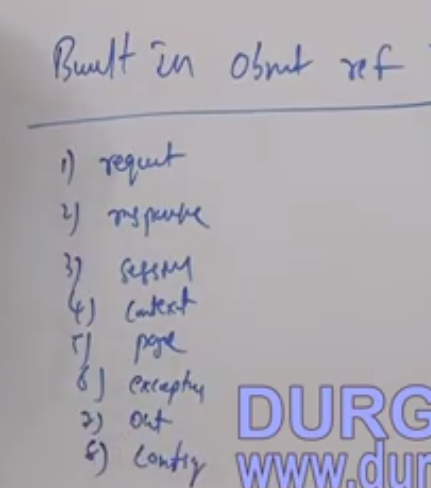 Built in object ref
1) request
2) response
3) session
4) context
5) page
6) exception
7) out
8) config
DURG
www.dur